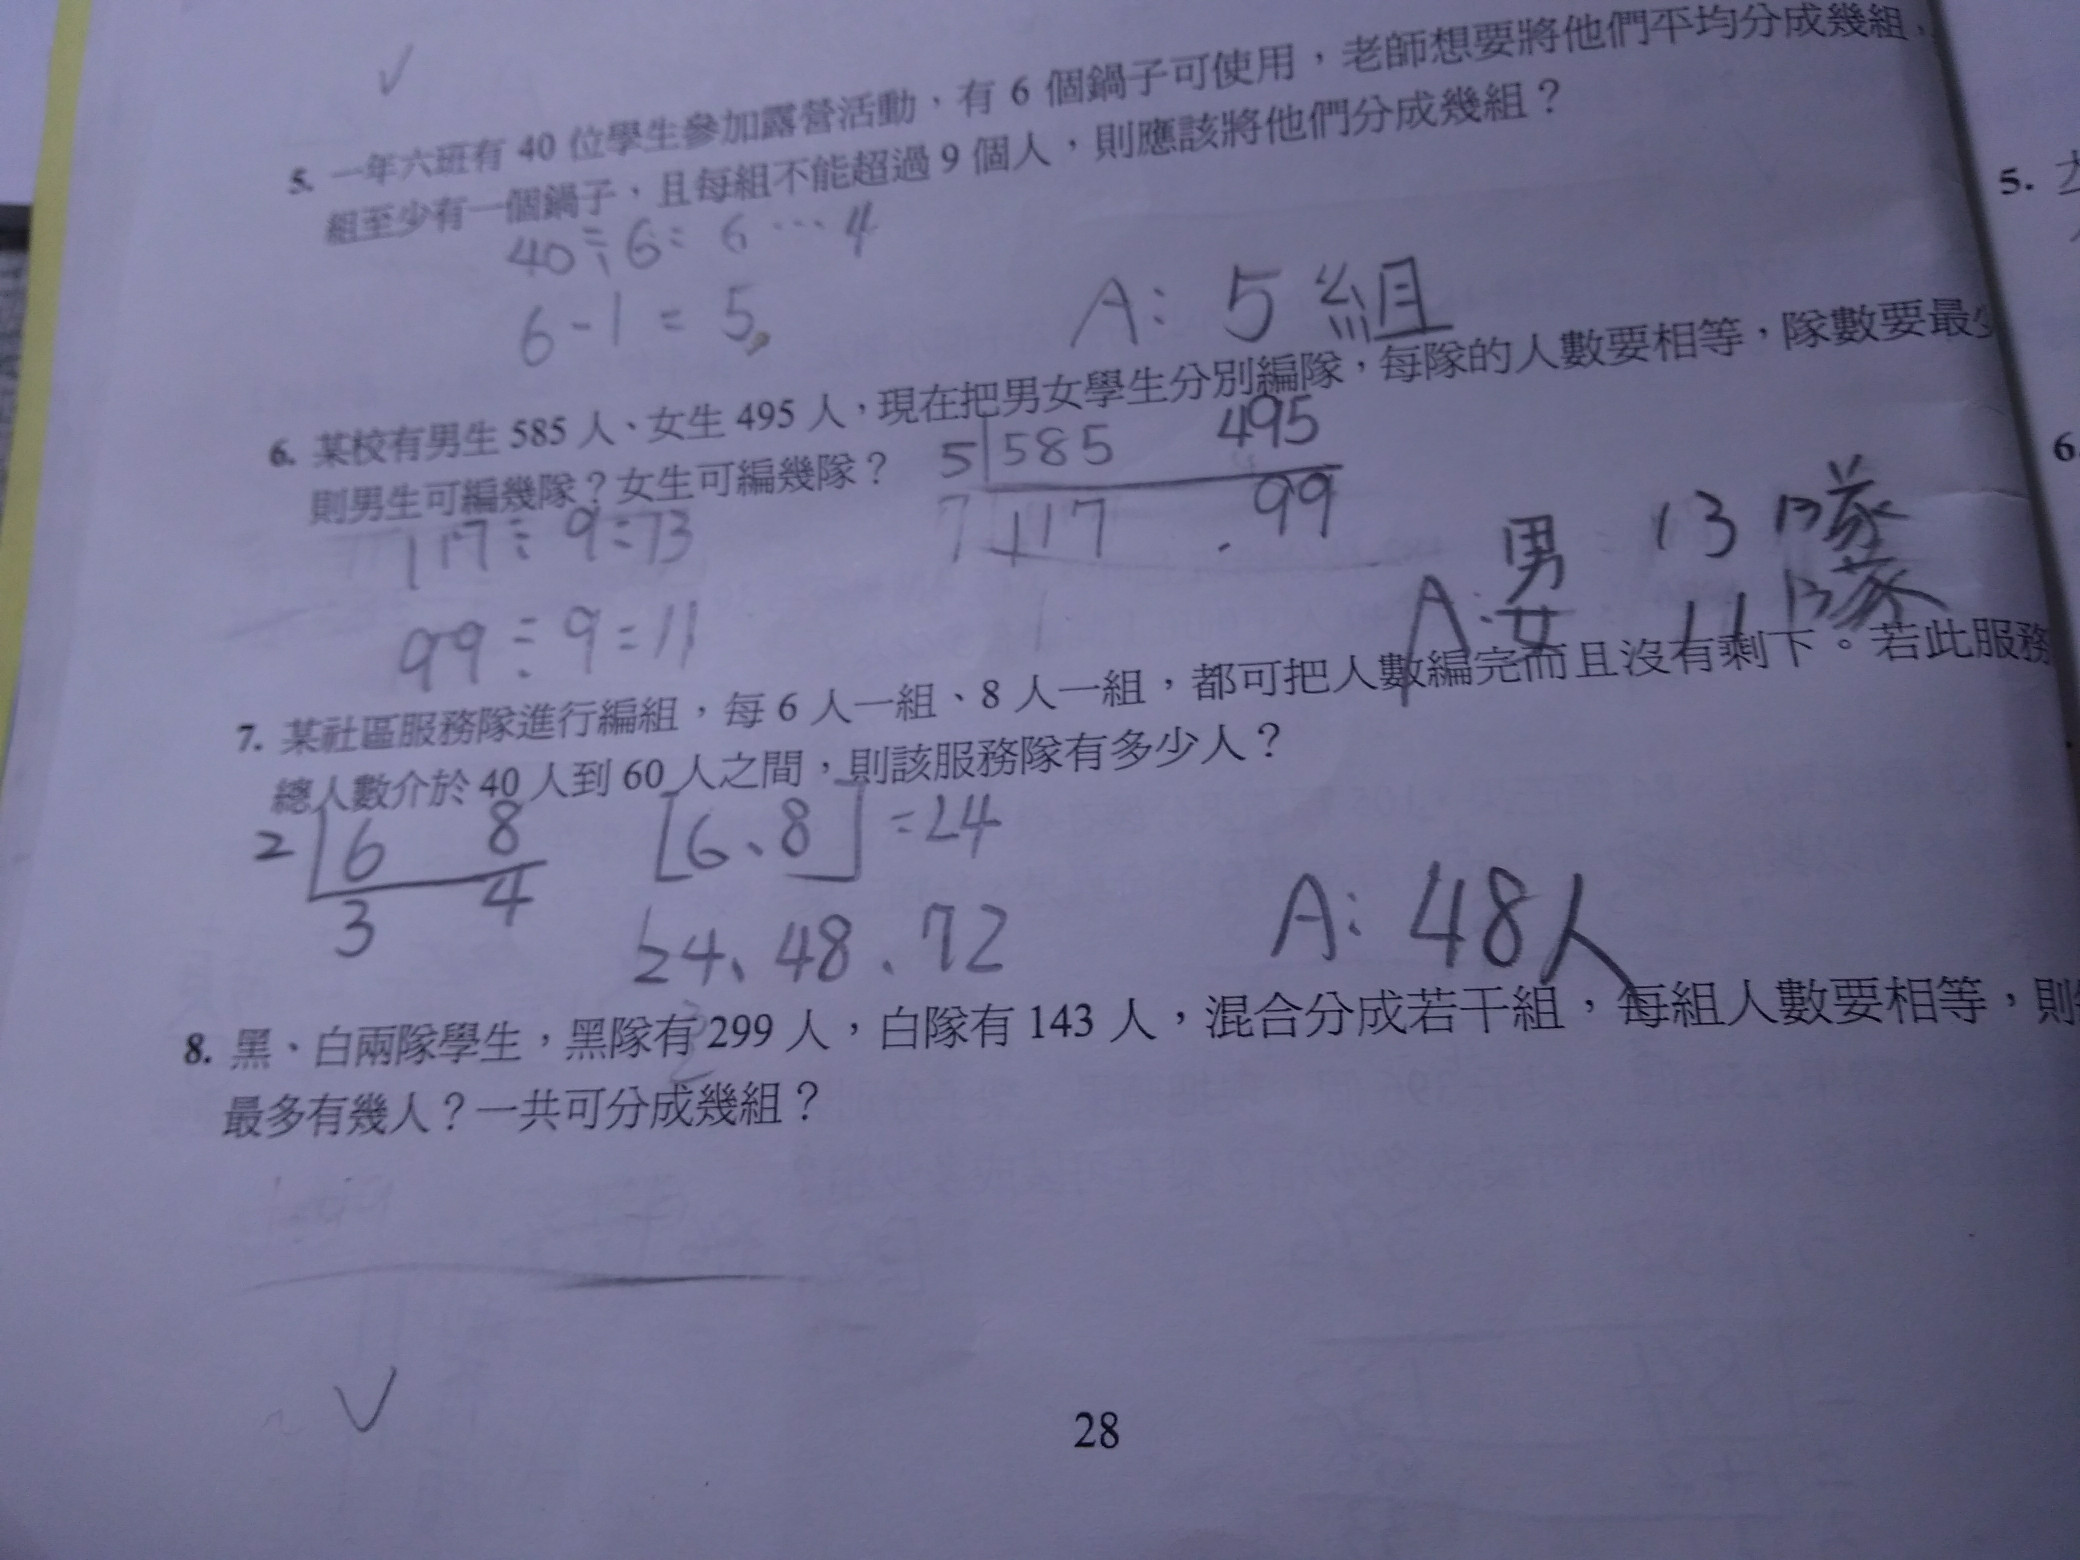 5. 一年六班有 40 位學生參加露營活動，有 6 個鍋子可使用，老師想要將他們平均分成幾組，
組至少有一個鍋子，且每組不能超過 9 個人，則應該將他們分成幾組？
40÷6=6…4
6-1=5
A: 5組
6. 某校有男生 585 人、女生 495 人，現在把男女學生分別編隊，每隊的人數要相等，隊數要最少
則男生可編幾隊？女生可編幾隊？
5 585 495
7 117 99
117÷9=13
99÷9=11
A: 男 13隊
女 11隊
7. 某社區服務隊進行編組，每 6 人一組、8 人一組，都可把人數編完而且沒有剩下。若此服務
總人數介於 40 人到 60 人之間，則該服務隊有多少人？
2 6 8
3 4
[6、8]=24
24、48、72
A: 48人
8. 黑、白兩隊學生，黑隊有 299 人，白隊有 143 人，混合分成若干組，每組人數要相等，則
最多有幾人？一共可分成幾組？
28
5.
6.